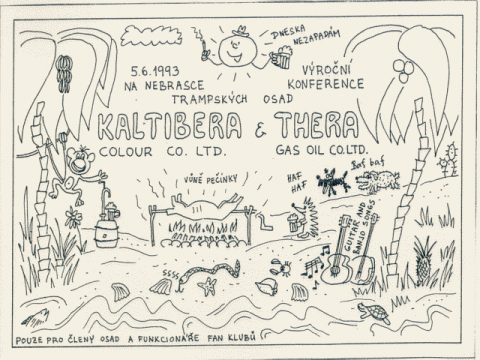 DNESKA
NEZAPADÁM
5.6.1993
NA NEBRASCE
VÝROČNÍ
KONFERENCE
TRAMPSKÝCH OSAD
KALTIBERA & THERA
COLOUR CO. LTD.
GAS OIL CO.LTD.
VŮNĚ PEČÍNKY
HAF
HAF
Baf baf
GUITAR AND
BANJO SONGS
SSSS
POUZE PRO ČLENY OSAD A FUNKCIONÁŘE FAN KLUBŮ